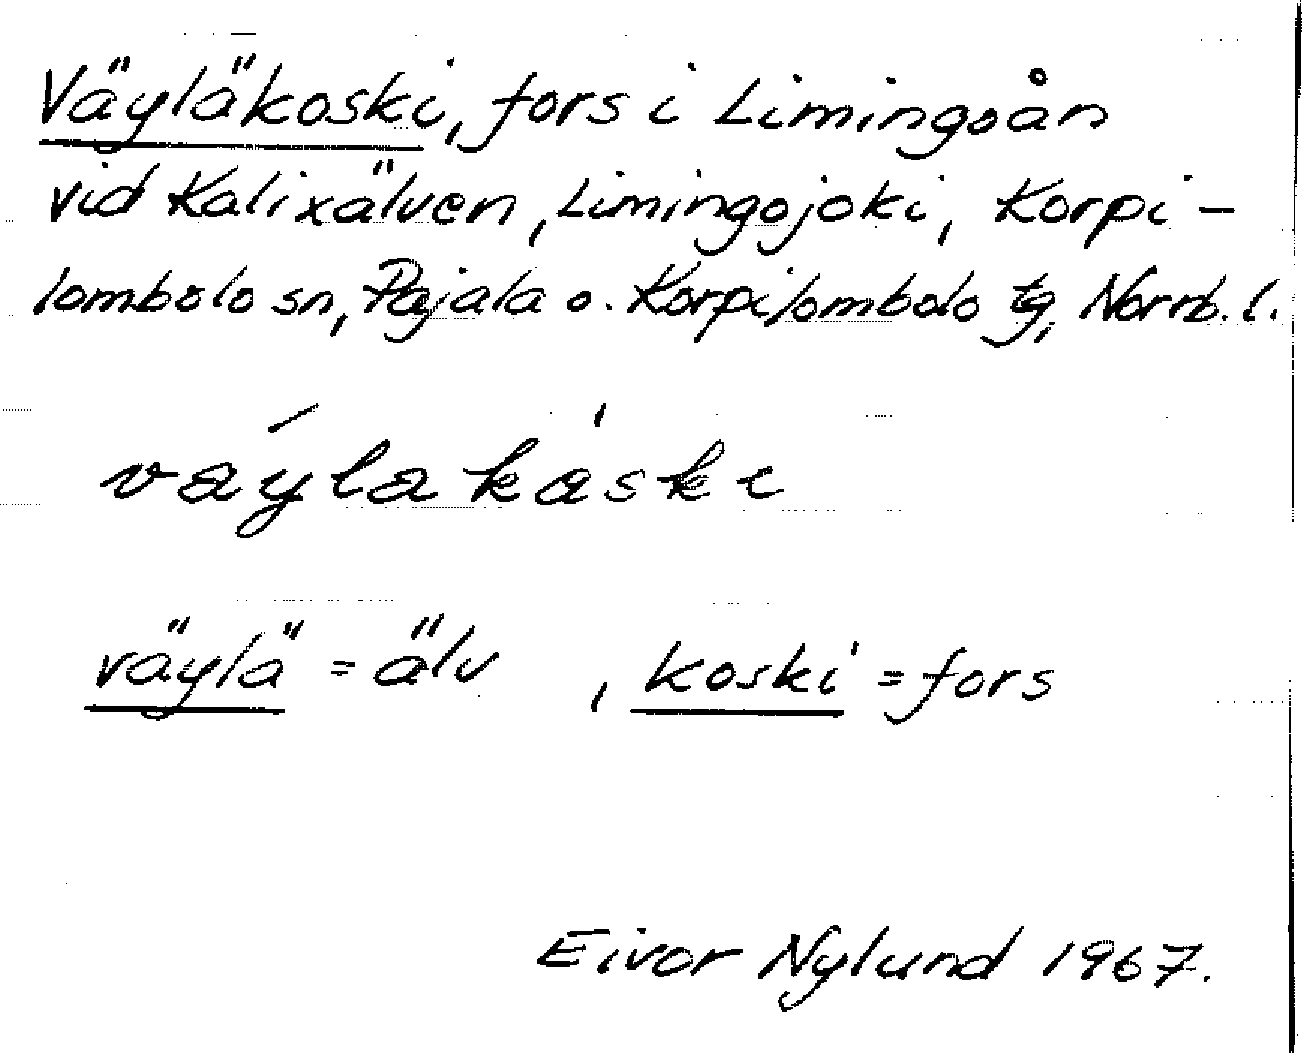 Väyläkoski, fors i Limingoån
vid Kalixälven, Limingojoki, Korpi-
lombolo sn, Pajala o. Korpilombolo tg, Norrb. l.
väylä = älv , koski = fors
Eivor Nylund 1967.